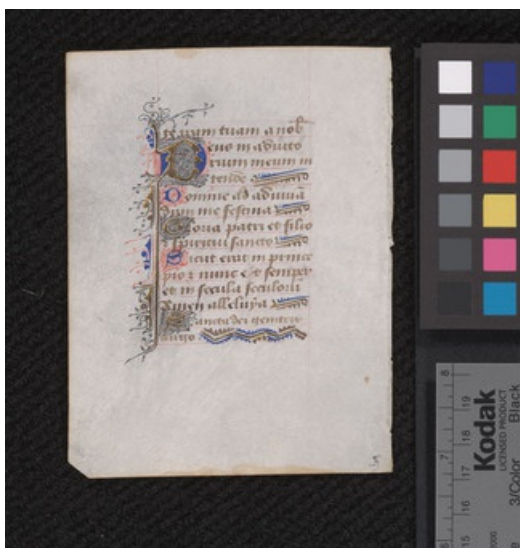 tuam a nob
eus in adiuto
rium meum in
tende
Domine ad adiuuā
dum me festina
Gloria patri et filio
spiritui sancto
Sicut erat in princi
pio et nunc et semper
et in secula seculorū
Amen alleluya
Sancta dei genitrix
uirgo
Kodak
LICENSED PRODUCT
3/Color Black
8
19
18
7
17
16
6
15